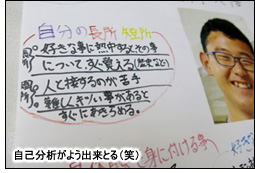 自分の長所 短所
好きな事に熱中する。その事
について、すぐ覚える(歴史など)
人と接するのが苦手
難しくキツい事があると
すぐにあきらめる。
身に付ける事
好き
自己分析がよう出来とる(笑)